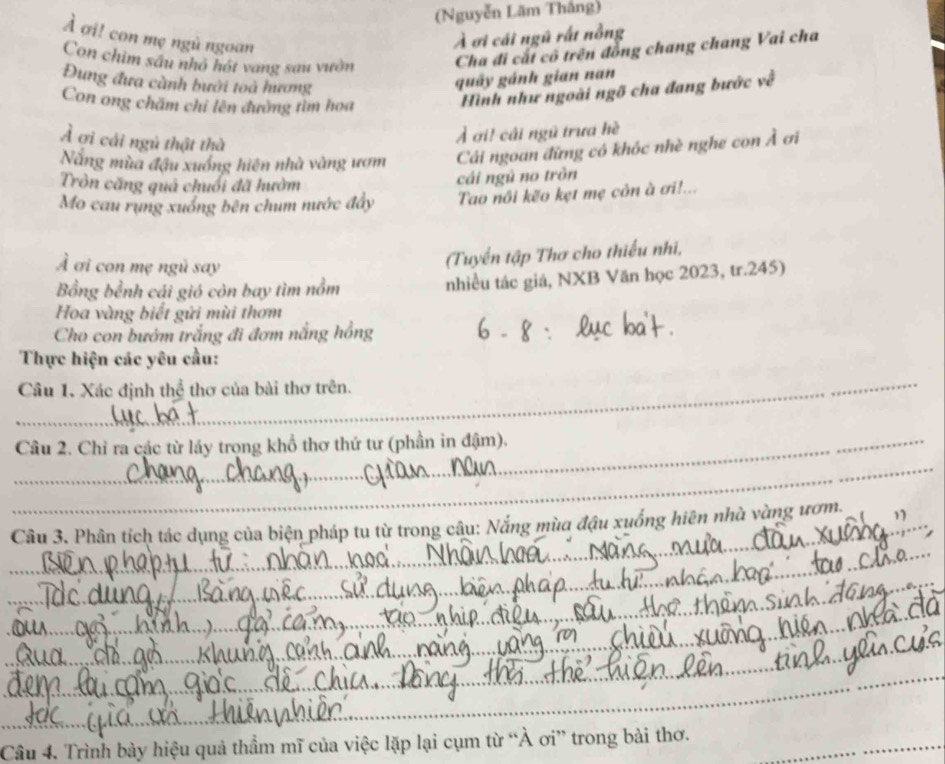 (Nguyễn Lãm Thắng)
À ơi! con mẹ ngủ ngoan
Con chim sâu nhỏ hót vang sau vườn
Đung đưa cành bưởi toả hương
Con ong chăm chỉ lên đường tìm hoa
À ơi cái ngủ thật thà
Nắng mùa đậu xuống hiên nhà vàng ươm
Tròn căng quả chuối đã hườm
Mo cau rụng xuống bên chum nước đầy
À ơi con mẹ ngủ say
Bồng bềnh cái gió còn bay tìm nồm
Hoa vàng biết gửi mùi thơm
Cho con bướm trắng đi đơm nắng hồng
À ơi cái ngủ rất nồng
Cha đi cắt cỏ trên đồng chang chang Vai cha
quảy gánh gian nan
Hình như ngoài ngõ cha đang bước về
À ơi! cái ngủ trưa hè
Cái ngoan đừng có khóc nhè nghe con À ơi
cái ngủ no tròn
Tao nôi kẽo kẹt mẹ còn à ơi!...
(Tuyển tập Thơ cho thiếu nhi,
nhiều tác giả, NXB Văn học 2023, tr.245)
6 - 8 : lục bát.
Thực hiện các yêu cầu:
Câu 1. Xác định thể thơ của bài thơ trên.
lục bát
Câu 2. Chỉ ra các từ láy trong khổ thơ thứ tư (phần in đậm).
chang chang, gian nan
Câu 3. Phân tích tác dụng của biện pháp tu từ trong câu: Nắng mùa đậu xuống hiên nhà vàng ươm.
Biện pháp tu từ : nhân hoá. Nhân hoá : Nắng mùa đậu xuống"
Tác dụng: Bằng việc sử dụng biện pháp tu từ nhân hoá tao cho
gợi hình, gợi cảm, tạo nhịp điệu, câu thơ thêm sinh động
Qua đó gợi khung cảnh ánh nắng vàng chiếu xuống hiên nhà đã
đem lại cảm giác dễ chịu. Đồng thời thể hiện lên tình yêu của
tác giả với thiên nhiên.
Câu 4. Trình bày hiệu quả thẩm mĩ của việc lặp lại cụm từ “À ơi” trong bài thơ.